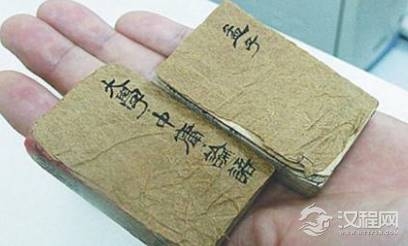 孟子
大學中庸論語
汉程网
HTTPCN.COM